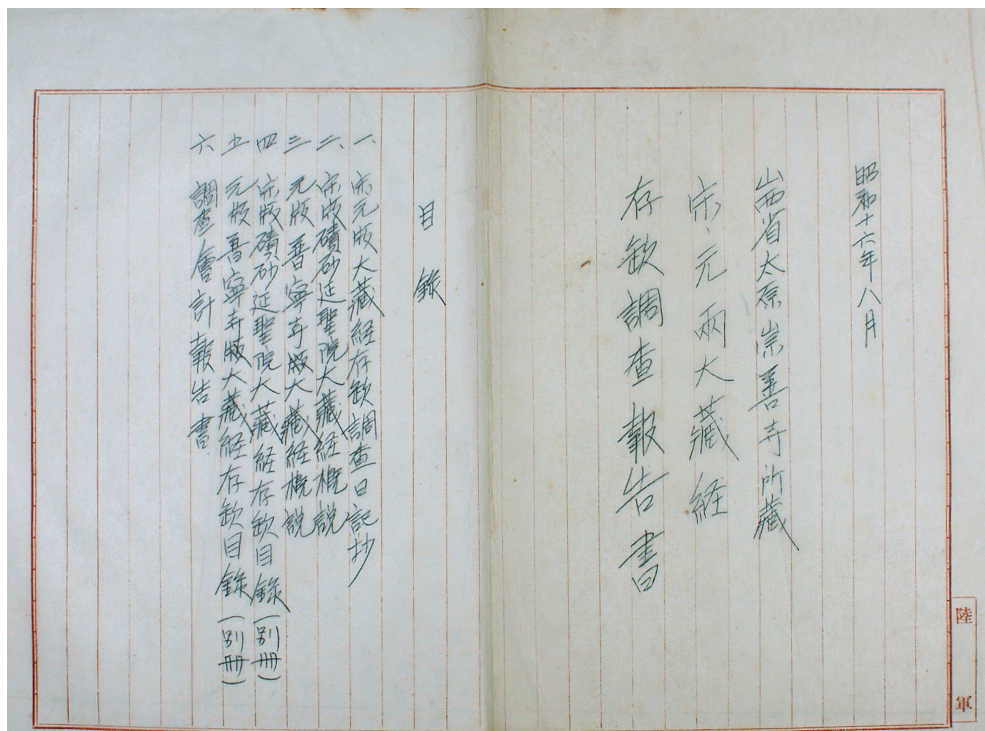 昭和十六年八月
山西省太原崇善寺所藏
宋、元兩大藏経
存欽調查報告書
目錄
一、宋元版大藏経存欽調查日記抄
二、宋版磧砂延聖院大藏経概說
三、元版普寧寺版大藏経概說
四、宋版磧砂延聖院大藏経存欽目錄(別冊)
五、元版普寧寺版大藏経存欽目錄(別冊)
六、調查會計報告書
陸軍